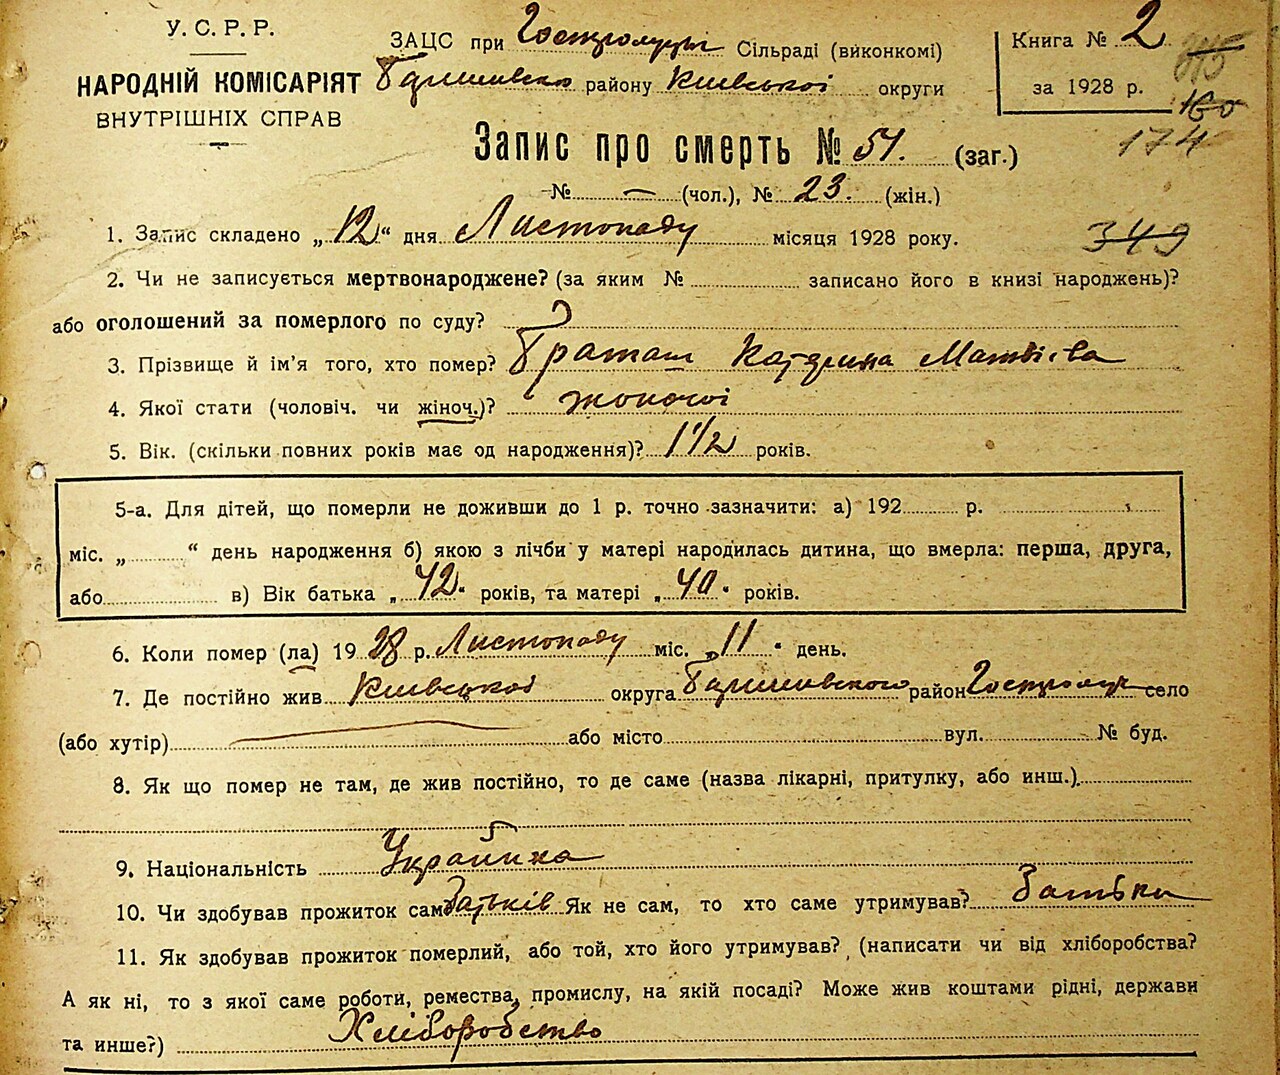 У.С.Р.Р.
НАРОДНІЙ КОМІСАРІЯТ
ВНУТРІШНІХ СПРАВ
ЗАЦС при Гостролуцькій Сільраді (виконкомі)
Баришевсько району Київської округи
Книга № 2
за 1928 р.
315
160
174
Запис про смерть № 51. (заг.)
№ — (чол.), № 23. (жін.)
349
1. Запис складено „12“ дня Листопаду місяця 1928 року.
2. Чи не записується мертвонароджене? (за яким № записано його в книзі народжень)?
або оголошений за померлого по суду?
3. Прізвище й ім'я того, хто помер? Катерина Матвієва
4. Якої статі (чоловіч. чи жіноч.)? жоночої
5. Вік. (скільки повних років має од народження)? 1 1/2 років.
5-а. Для дітей, що померли не доживши до 1 р. точно зазначити: а) 192 р.
міс. „ “ день народження б) якою з лічби у матері народилась дитина, що вмерла: перша, друга,
або в) Вік батька „42“ років, та матері „40“ років.
6. Коли помер (ла) 1928 р. Листопаду міс. „11“ день.
7. Де постійно жив Київської округа Баришовского район Гостролуч село
(або хутір) або місто вул. № буд.
8. Як що помер не там, де жив постійно, то де саме (назва лікарні, притулку, або инш.)
9. Національність Українка
10. Чи здобував прожиток сам Батьків Як не сам, то хто саме утримував? Батьки
11. Як здобував прожиток померлий, або той, хто його утримував? (написати чи від хліборобства?
А як ні, то з якої саме роботи, ремества, промислу, на якій посаді? Може жив коштами рідні, держави
та инше?) Хліборобство